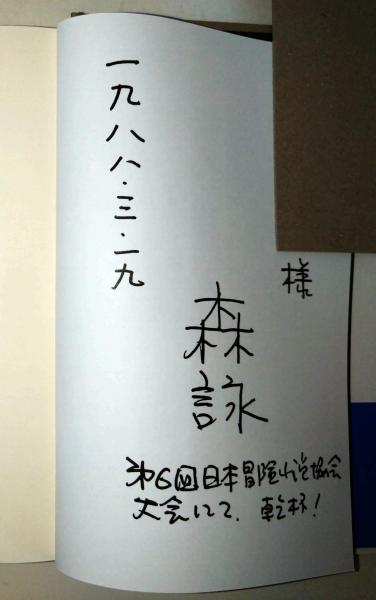 様
森詠
一九八八・三・一九
第6回日本冒険小説協会
大会にて、乾杯！